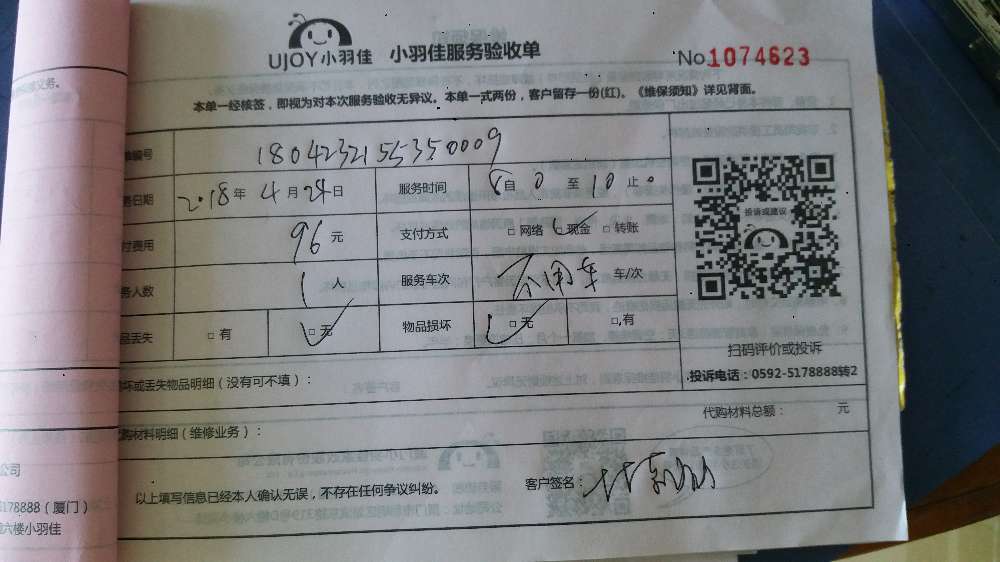 UJOY小羽佳 小羽佳服务验收单 No.1074623
本单一经核签，即视为对本次服务验收无异议。本单一式两份，客户留存一份(红)。《维保须知》详见背面。
编号 18042321555350009
日期 2018年4月24日 服务时间 8自0至10止0
费用 96元 支付方式 □网络 □现金 □转账
人数 1人 服务车次 不用车 车/次
丢失 □有 □无 物品损坏 □无 □有
投诉或建议
扫码评价或投诉
投诉电话：0592-5178888转2
坏或丢失物品明细（没有可不填）：
代购材料总额： 元
购材料明细（维修业务）：
以上填写信息已经本人确认无误，不存在任何争议纠纷。 客户签名：
义务。
公司
178888（厦门）
六楼小羽佳